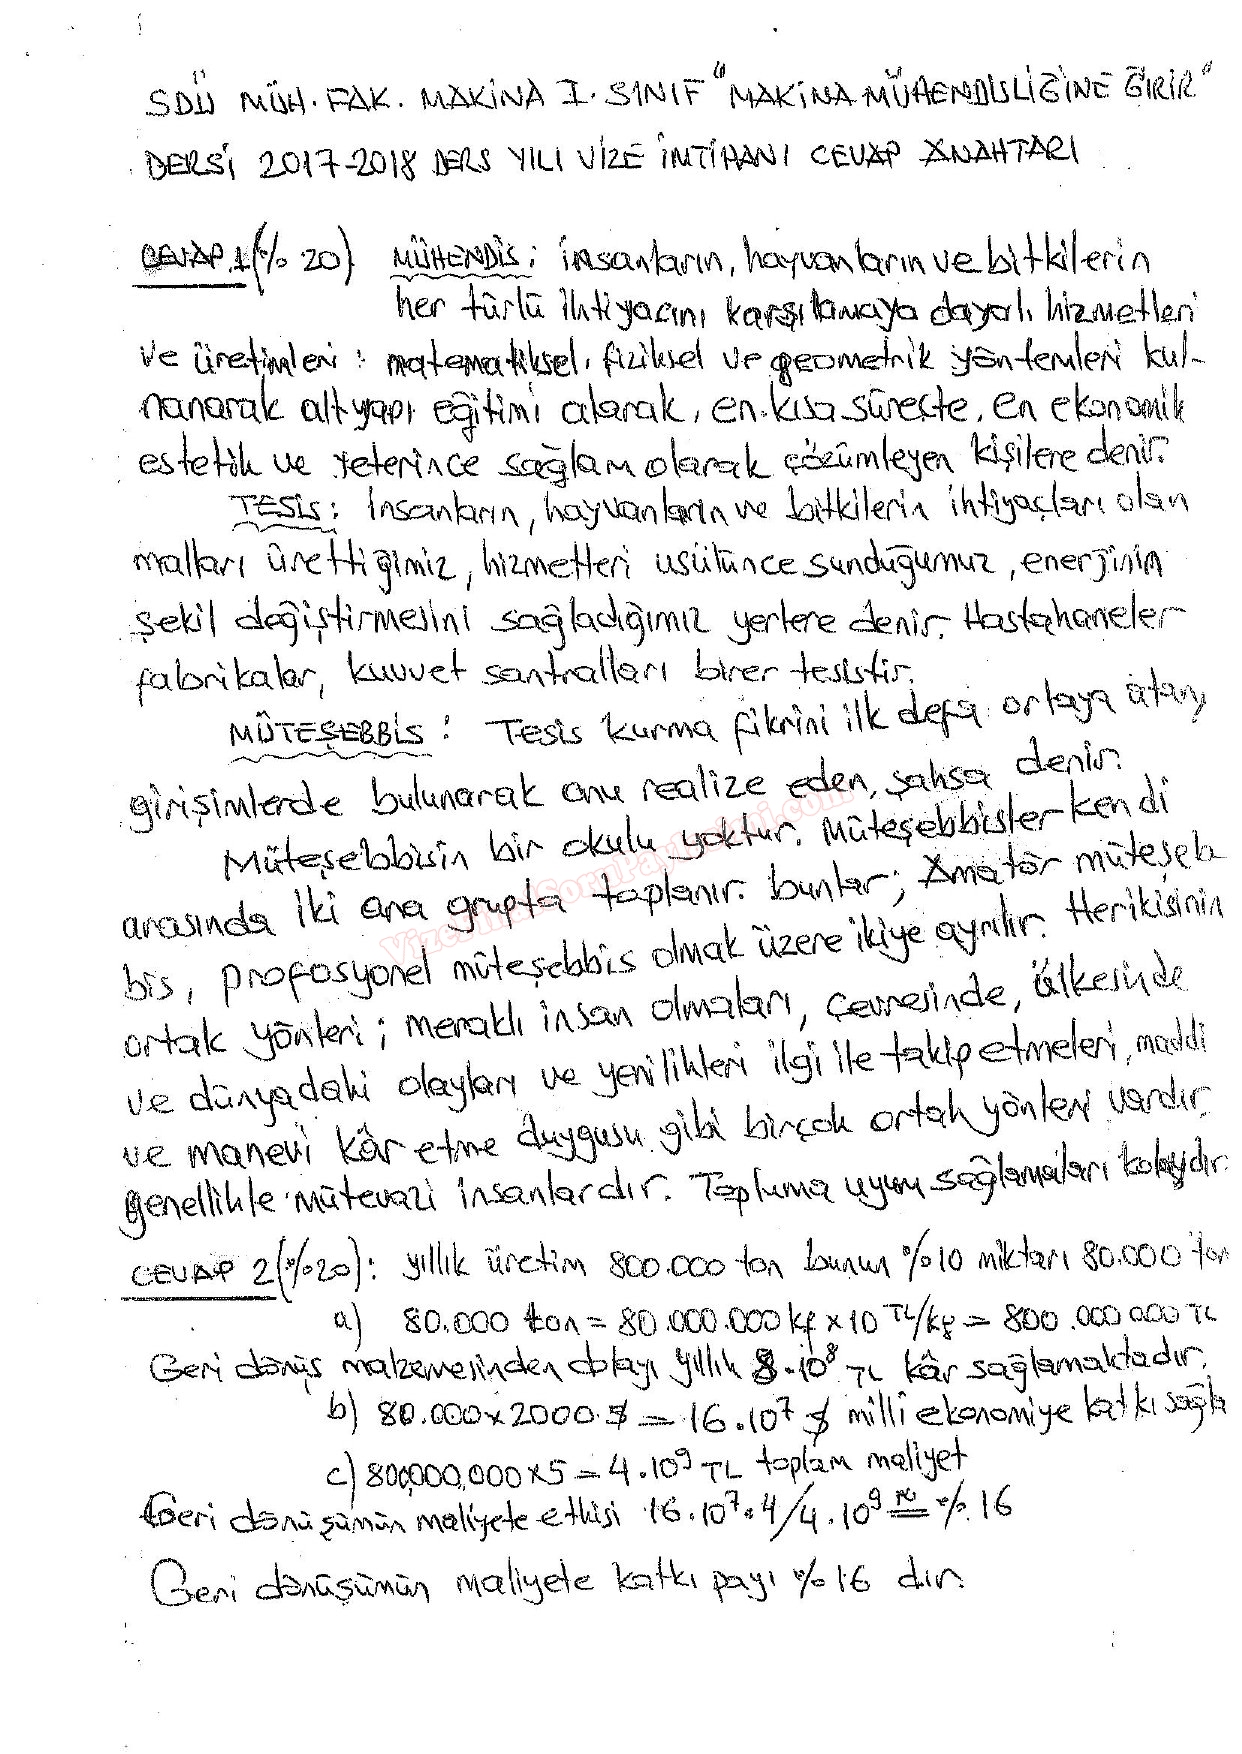 SDÜ MÜH. FAK. MAKİNA I. SINIF "MAKİNA MÜHENDİSLİĞİNE GİRİŞ"
DERSİ 2017-2018 DERS YILI VİZE İMTİHANI CEVAP ANAHTARI
CEVAP 1 (% 20) MÜHENDİS: insanların, hayvanların ve bitkilerin
her türlü ihtiyacını karşılamaya dayalı hizmetleri
ve üretimleri: matematiksel, fiziksel ve geometrik yöntemleri kul-
nanarak altyapı eğitimi alarak, en kısa süreçte, en ekonomik
estetik ve yeterince sağlam olarak çözümleyen kişilere denir.
TESİS: İnsanların, hayvanların ve bitkilerin ihtiyaçları olan
malları ürettiğimiz, hizmetleri usülünce sunduğumuz, enerjinin
şekil değiştirmesini sağladığımız yerlere denir. Hastahaneler
fabrikalar, kuvvet santralları birer tesistir.
MÜTEŞEBBİS: Tesis kurma fikrini ilk defa ortaya atan,
girişimlerde bulunarak onu realize eden, şahsa denir.
Müteşebbisin bir okulu yoktur. Müteşebbisler kendi
arasında iki ana grupta toplanır. bunlar; Amatör müteşeb
bis, profosyonel müteşebbis olmak üzere ikiye ayrılır. Herikisinin
ortak yönleri; meraklı insan olmaları, çevresinde, ülkesinde
ve dünyadaki olayları ve yenilikleri ilgi ile takip etmeleri, maddi
ve manevi kâr etme duygusu gibi birçok ortak yönleri vardır.
genellikle mütevazi insanlardır. Topluma uyum sağlamaları kolaydır.
CEVAP 2 (%20): yıllık üretim 800.000 ton bunun %10 miktarı 80.000 ton
a) 80.000 ton = 80.000.000 kg x 10 TL/kg = 800.000.000 TL
Geri dönüş malzemesinden dolayı yıllık 8.10⁸ TL kâr sağlamaktadır.
b) 80.000 x 2000 $ = 16.10⁷ $ milli ekonomiye katkı sağla
c) 800,000,000 x 5 = 4.10⁹ TL toplam maliyet
Geri dönüşümün maliyete etkisi 16.10⁷.4/4.10⁹ ≅ %.16
Geri dönüşümün maliyete katkı payı %16 dır.
VizeFinalSoruPaylasimi.com